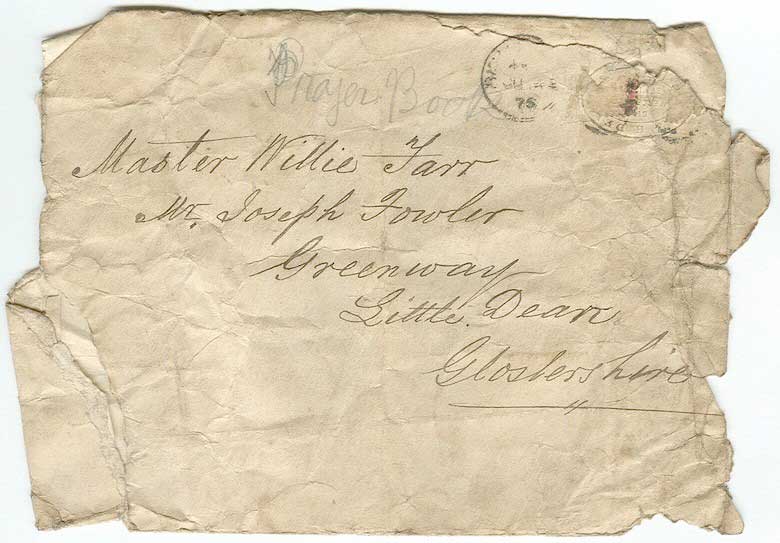 Prayer Book
75
Master Willie Farr
Mr. Joseph Fowler
Greenway
Little Dean
Glostershire